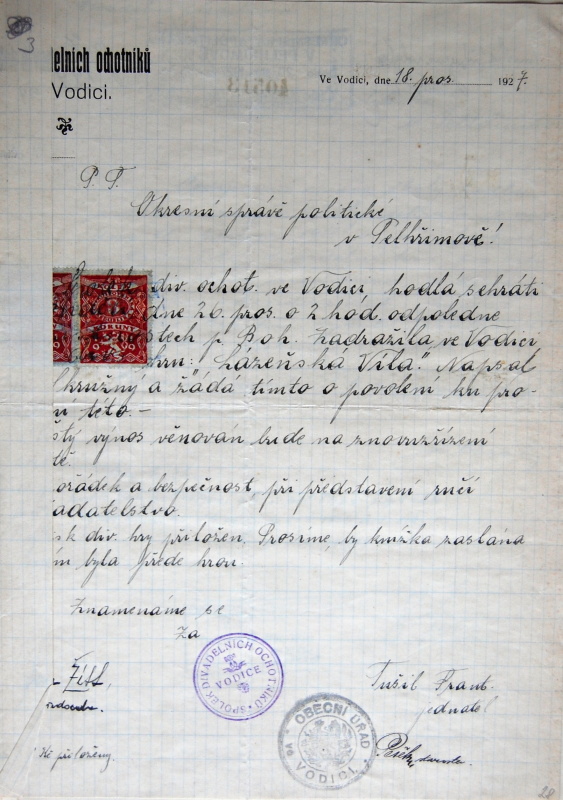 3
delních ochotníků
Vodici.
Ve Vodici, dne 18. pros. 1927.
P. T.
Okresní správě politické
v Pelhřimově!
div. ochot. ve Vodici, hodlá sehráti
dne 26. pros. o 2 hod. odpoledne
p. Boh. Zadražila ve Vodici
hru: "Lázeňská Víla". Napsal
Okružný a žádá tímto o povolení ku pro-
ní této.-
stý výnos věnován bude na znovuzřízení
tě.
ořádek a bezpečnost při představení ručí
adatelstvo.
sk div. hry přiložen. Prosíme, by knížka zaslána
m byla přede hrou.
Znamenáme se
Za
SPOLEK DIVADELNÍCH OCHOTNÍKŮ
VODICE
Tušil Frant.
jednatel
OBECNÍ ÚŘAD
VE VODICI
Kč přiloženy.
28